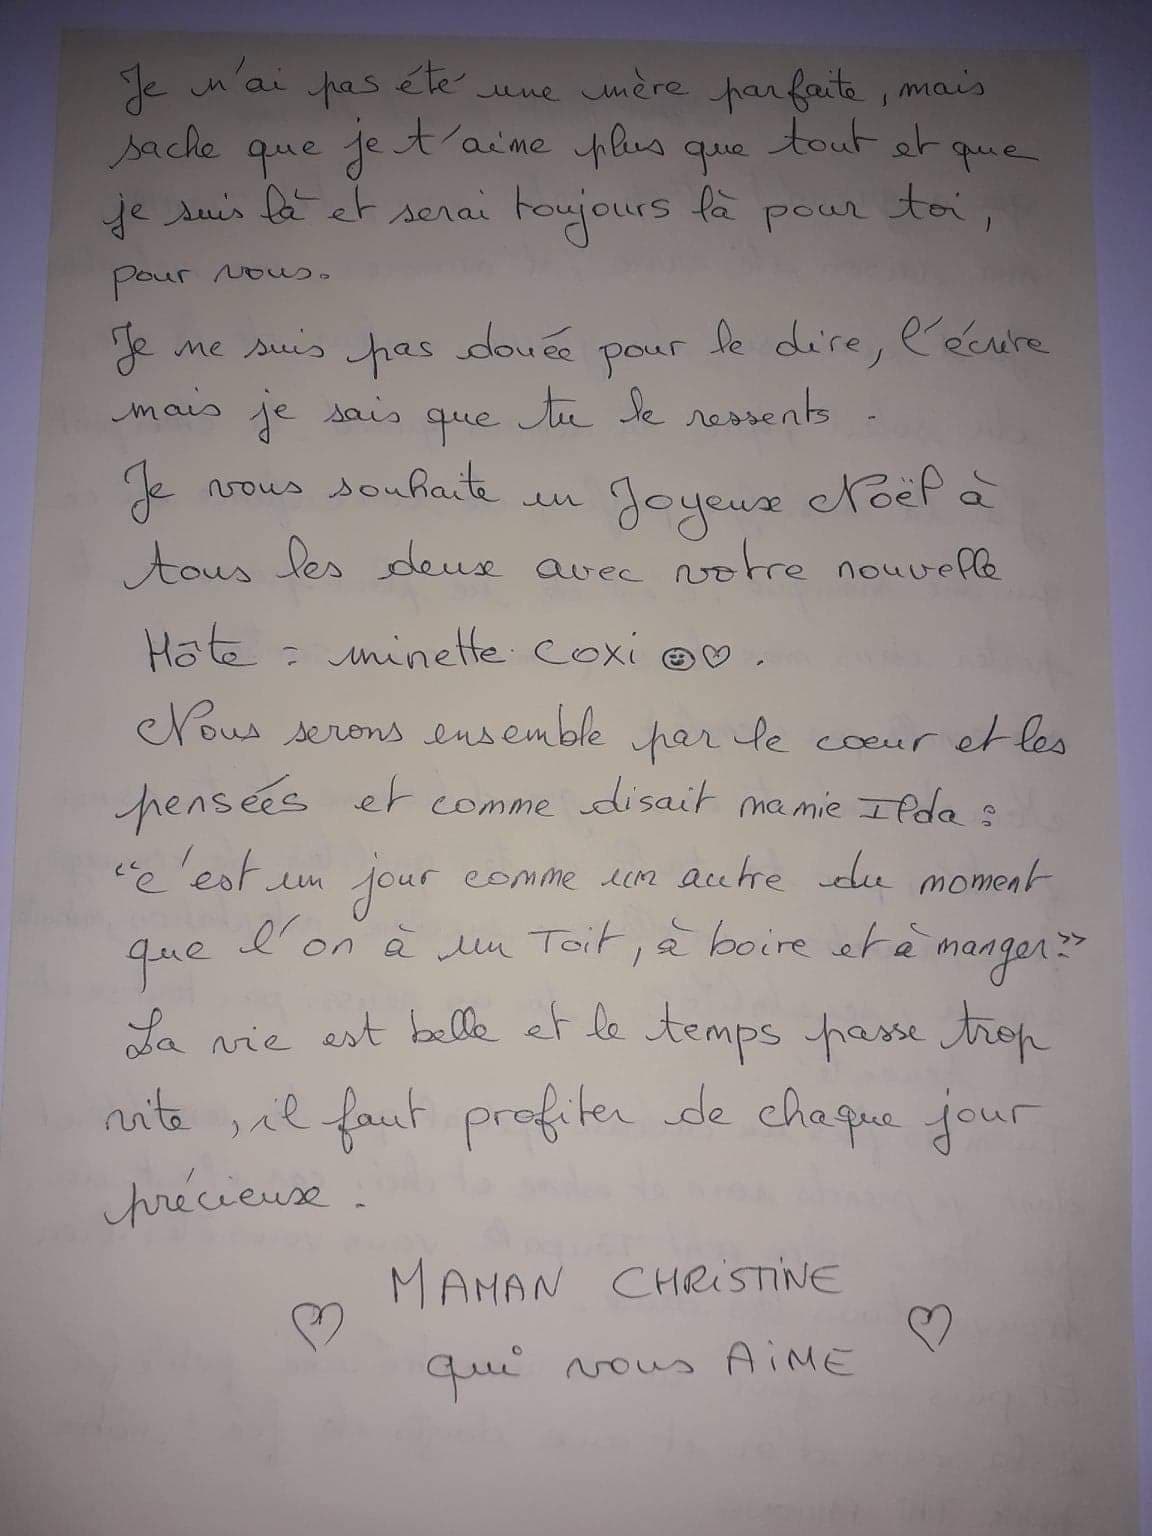 Je n'ai pas été une mère parfaite, mais
sache que je t'aime plus que tout et que
je suis là et serai toujours là pour toi,
pour vous.
Je ne suis pas douée pour le dire, l'écrire
mais je sais que tu le ressents.
Je vous souhaite un Joyeux Noël à
tous les deux avec votre nouvelle
Hôte : minette Coxi ☺♡.
Nous serons ensemble par le cœur et les
pensées et comme disait mamie Ilda :
"c'est un jour comme un autre du moment
que l'on à un Toit, à boire et à manger"
La vie est belle et le temps passe trop
vite, il faut profiter de chaque jour
précieux.
MAMAN CHRISTINE
♡ qui vous AIME ♡